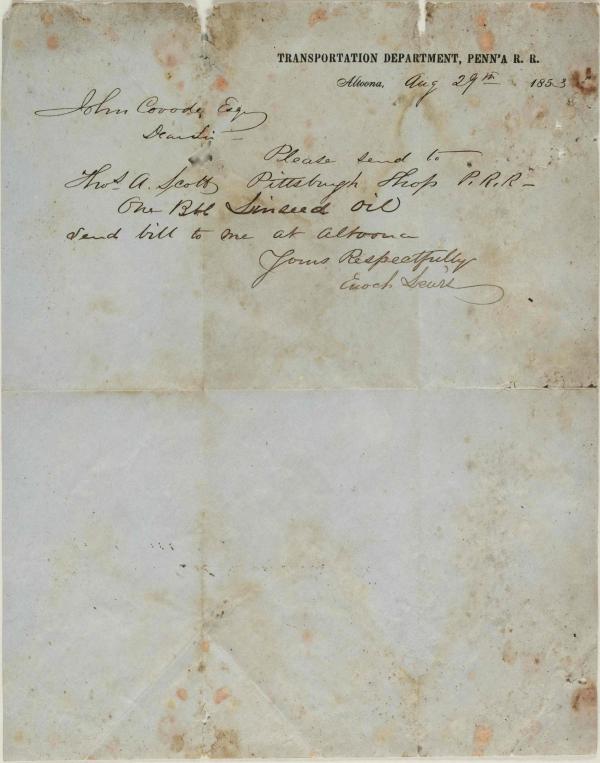 TRANSPORTATION DEPARTMENT, PENN'A R. R.
Altoona, Aug 29th 1853
John Covode Esq
Dear Sir
Please send to
Thos A. Scott Pittsburgh Shop P.R.R-
One Bbl Linseed Oil
Send bill to me at Altoona
Yours Respectfully
Enoch Lewis